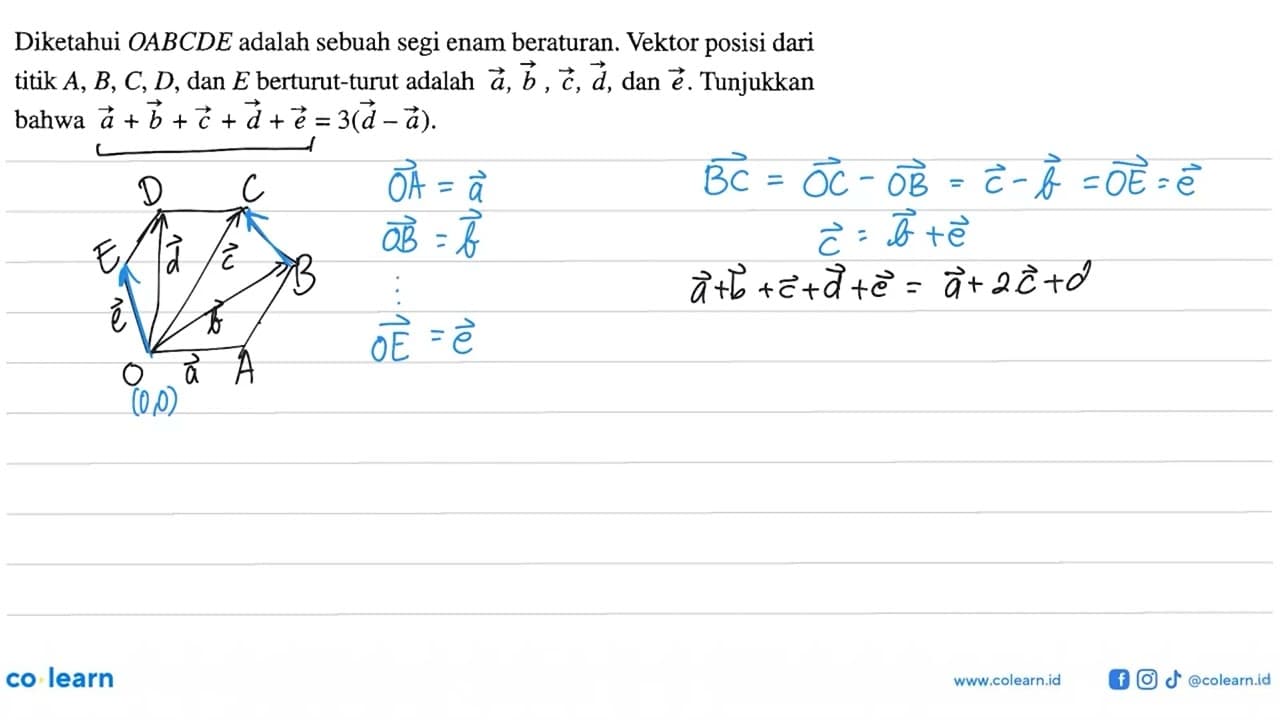 Diketahui OABCDE adalah sebuah segi enam beraturan. Vektor posisi dari
titik A, B, C, D, dan E berturut-turut adalah \vec{a}, \vec{b}, \vec{c}, \vec{d}, dan \vec{e}. Tunjukkan
bahwa \vec{a} + \vec{b} + \vec{c} + \vec{d} + \vec{e} = 3(\vec{d} – \vec{a}).
D C
E \vec{d} \vec{c} B
\vec{e} \vec{b}
O \vec{a} A
(0,0)
\vec{OA} = \vec{a}
\vec{OB} = \vec{b}
⋮
\vec{OE} = \vec{e}
\vec{BC} = \vec{OC} - \vec{OB} = \vec{c} - \vec{b} = \vec{OE} = \vec{e}
\vec{c} = \vec{b} + \vec{e}
\vec{a} + \vec{b} + \vec{c} + \vec{d} + \vec{e} = \vec{a} + 2\vec{c} + d
co learn
www.colearn.id @colearn.id